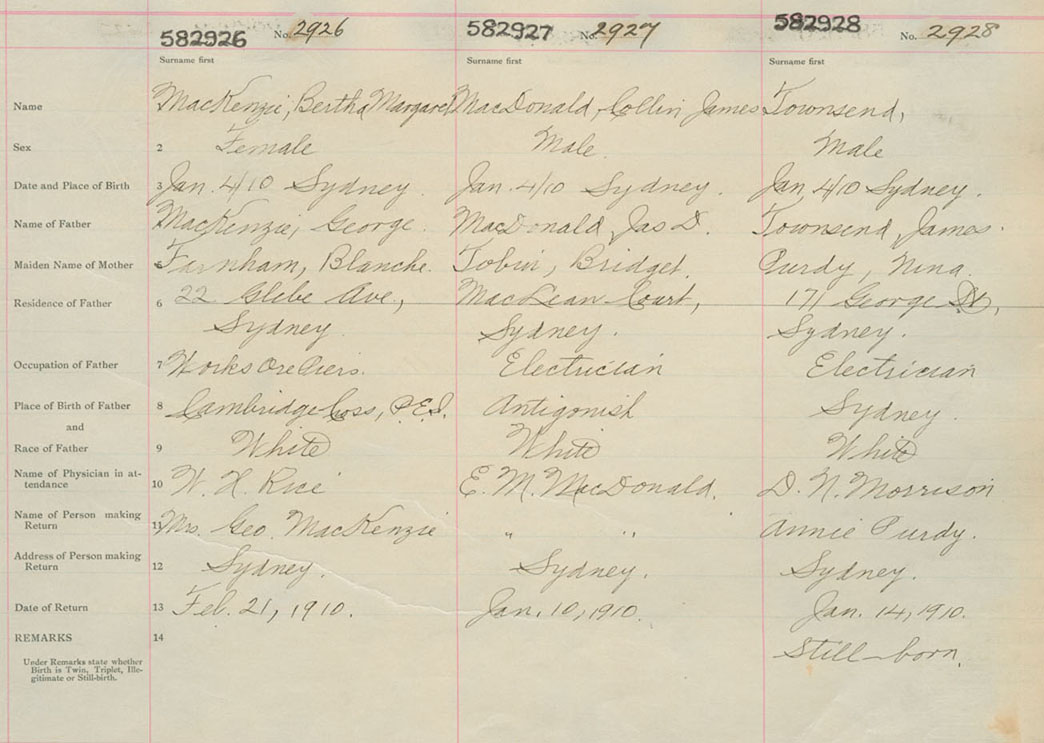 582926 No. 2926 582927 No. 2927 582928 No. 2928
Surname first Surname first Surname first
Name MacKenzie, Bertha Margaret MacDonald, Collin James Townsend,
Sex 2 Female Male. Male
Date and Place of Birth 3 Jan. 4/10 Sydney. Jan. 4/10 Sydney. Jan 4/10 Sydney.
Name of Father MacKenzie, George. MacDonald, Jas D. Townsend, James.
Maiden Name of Mother Farnham, Blanche. Tobin, Bridget. Purdy, Nina.
Residence of Father 6 22 Glebe Ave., MacLean Court, 171 George St,
Sydney. Sydney. Sydney.
Occupation of Father 7 Works Ore Piers. Electrician Electrician
Place of Birth of Father 8 Cambridge Coss, P.E.I. Antigonish Sydney.
and
Race of Father 9 White White White
Name of Physician in at-
tendance 10 W. H. Rice E. M. MacDonald. D. N. Morrison
Name of Person making
Return 11 Mrs. Geo. MacKenzie " " Annie Purdy.
Address of Person making
Return 12 Sydney. Sydney. Sydney.
Date of Return 13 Feb. 21, 1910. Jan. 10, 1910. Jan. 14, 1910.
REMARKS 14 Still-born.
Under Remarks state whether
Birth is Twin, Triplet, Ille-
gitimate or Still-birth.